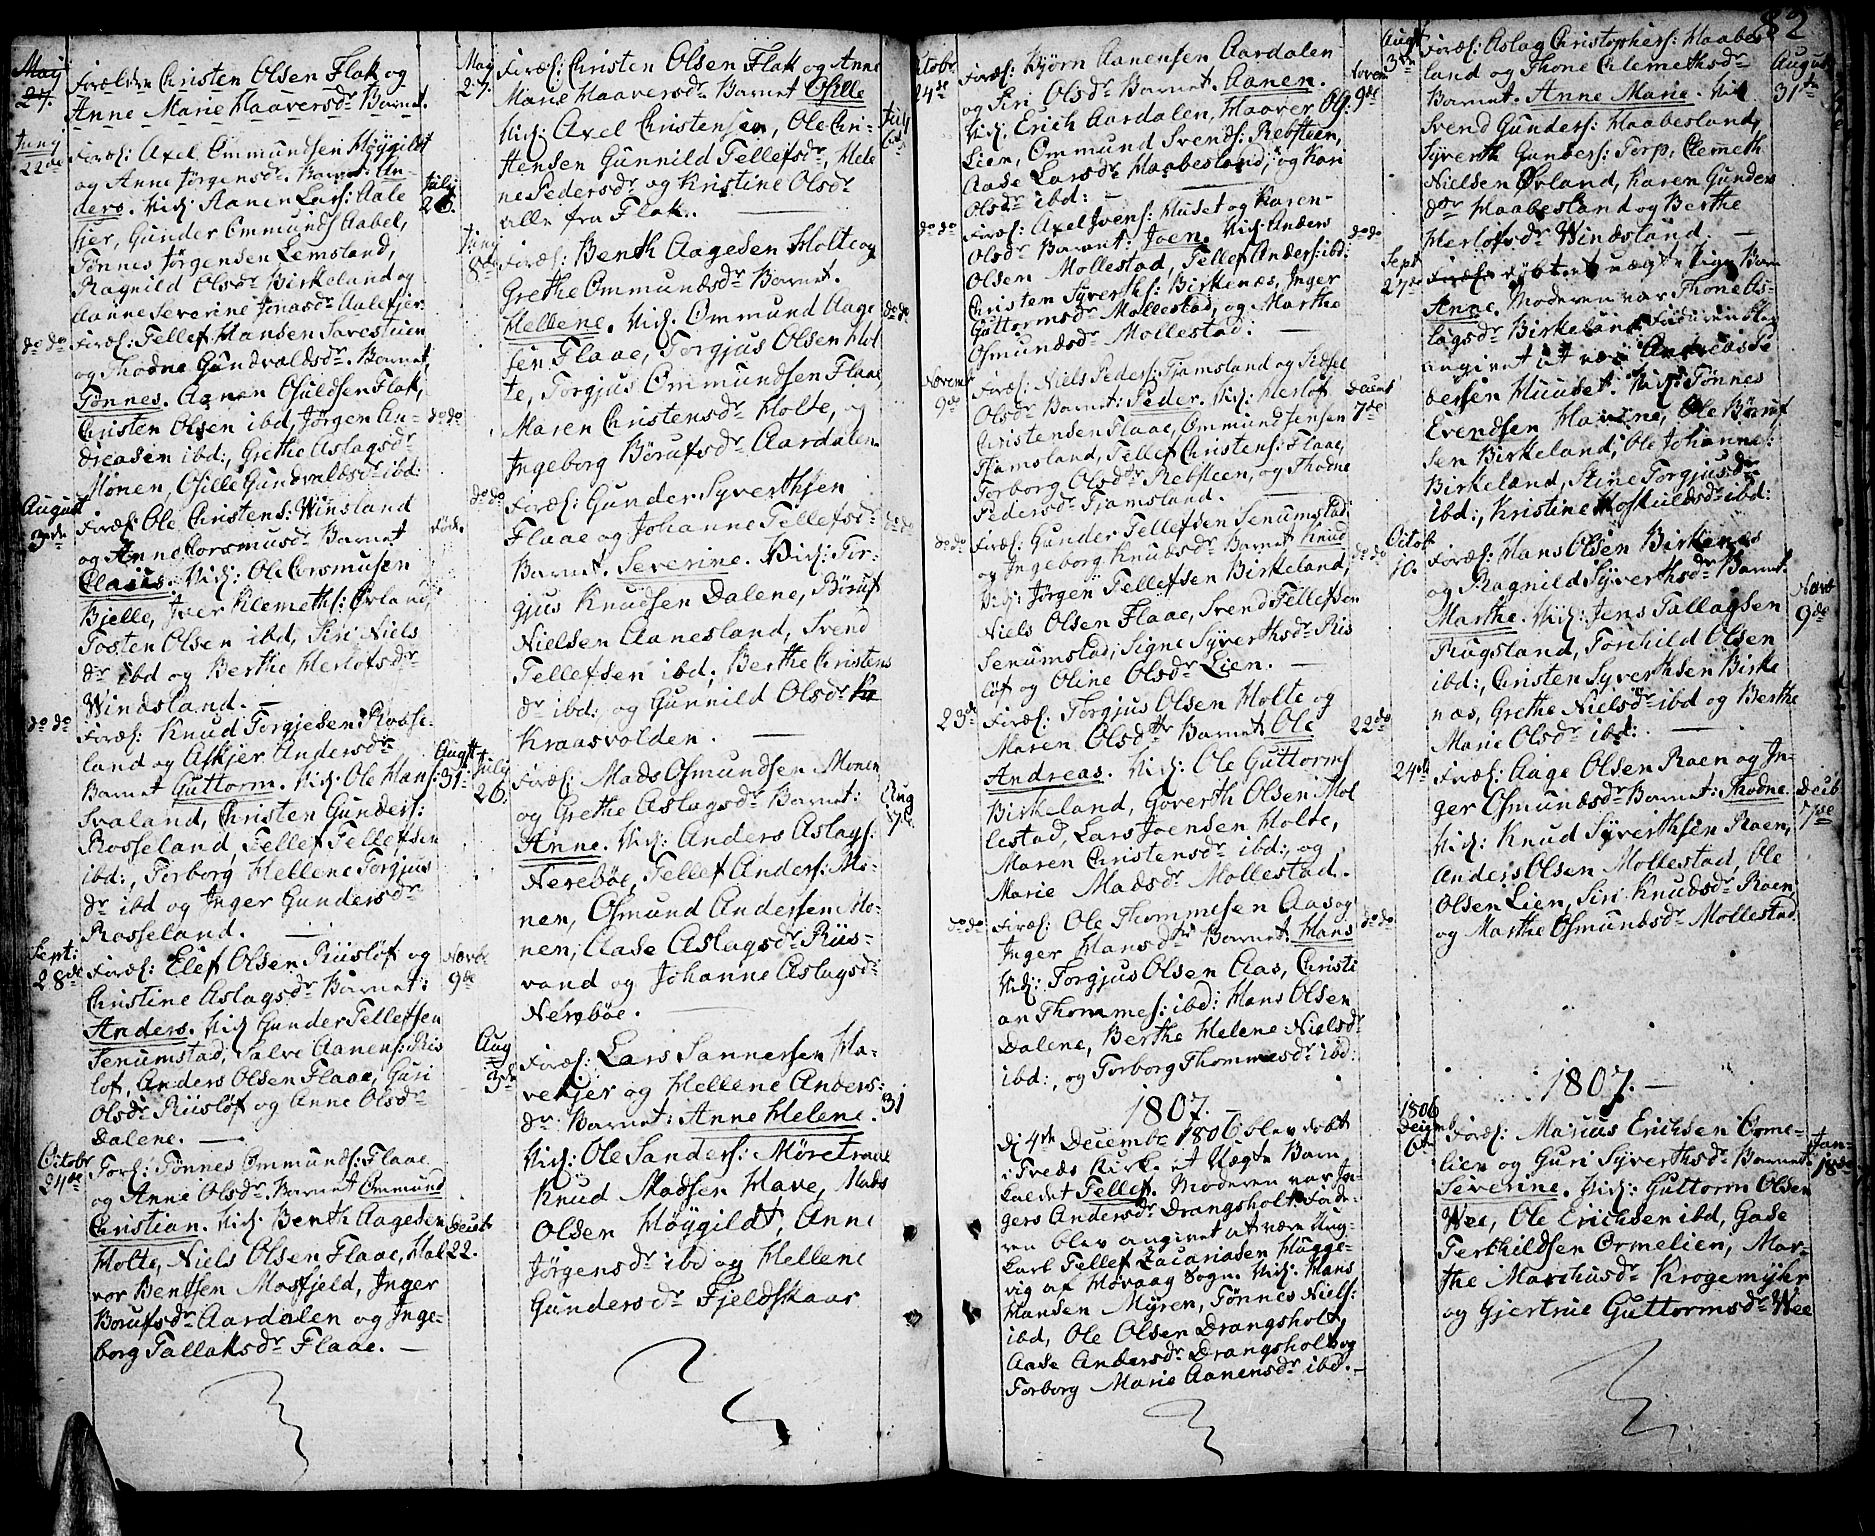 82
May
27.
Forældre Christen Olsen Flak og
Anne Marie Haaversdr Barnet.
Juny
22de
Foræl: Axel Ommundsen Høygilt
og Anne Jørgensdr. Barnet: An-
ders. Vid: Aanen Lars: Aale
fjer, Gunder Ommunds Aabel,
Tønnes Jørgensen Lemsland,
Ragnild Olsdr Birkeland og
Aanne Severine Jonasdr Aalefjer
July
26.
do do
Foræl: Tellef Hansen Sarestuen
og Thodne Gundvaldsdr. Barnet,
Tønnes. Aanen Osuldsen Flak,
Christen Olsen ibd, Jørgen An-
dreasen ibd:, Grethe Aslagsdr
Monen, Osille Gundvaldsdr ibd:
do do
August
3de
Foræl: Ole Christens: Winsland
og Anne Corsmusdr Barnet
Claius. Vid: Ole Corsmusen
Bjelle, Iver Klemeths: Ørland,
Tosten Olsen ibd, Siri Niels
dr ibd og Berthe Herlofsdr
Windsland. —
do do
Foræl: Knud Torgjesen Rosse-
land og Askjer Andersdr
Barnet Guttorm. Vid: Ole Hans:
Svaland, Christen Gunders:
Rosseland, Tellef Tellefsen
ibd:, Torborg Hellene Torgjus
dr ibd og Inger Gundersdr
Rosseland. —
Augst
31.
Sept:
28de
Foræl: Elef Olsen Riisløf og
Christine Aslagsdr Barnet:
Anders. Vid Gunder Tellefsen
Senumstad, Salve Aanens: Riis
løf, Anders Olsen Flaae, Guri
Olsdr Riisløf og Anne Olsdr
Dalene. —
Novbr
9de
Octobr
24de
Foræl: Tønnes Ommunds: Flaae
og Anne Olsdr. Barnet Ommund
Christian. Vid: Benth Aagesen
Holte, Niels Olsen Flaae, Hal
vor Bentsen Mosfjeld, Inger
Børufsdr Aardalen og Inge-
borg Tallaksdr Flaae. —
Decbr
22.
May
27.
Foræl: Christen Olsen Flak og Anne
Marie Haaversdr Barnet Osille
Vid: Axel Christensen, Ole Chri-
stensen Gunnild Tellefsdr, Hele
ne Pedersdr og Kristine Olsdr
alle fra Flak. —
July
6te
Juny
8de
Foræl: Benth Aagesen Holte og
Grethe Ommundsdr Barnet.
Hellene. Vid: Ommund Aage
sen Flaae, Torgjus Olsen Hol
te, Torgjus Ommundsen Flaae
Maren Christensdr Holte, og
Ingeborg Børufsdr Aardalen
do do
do do
Foræl: Gunder Syverthsen
Flaae og Johanne Tellefsdr
Barnet. Severine. Vid: Tor-
gjus Knudsen Dalene, Børuf
Nielsen Aanesland, Svend
Tellefsen ibd, Berthe Christens
dr ibd: og Gunnild Olsdr
Kraasvolden. —
do do
July
26.
Foræl: Mads Osmundsen Monen
og Grethe Aslagsdr Barnet:
Anne. Vid: Anders Aslags:
Nerebøe, Tellef Anders: Mo-
nen, Osmund Andersen Mo-
nen, Aase Aslagsdr Riis-
vand og Johanne Aslagsdr
Nerebøe. —
Aug
17de
Aug
3de
Foræl: Lars Sannersen Ha-
vekjer og Hellene Anders:
dr: Barnet: Anne Helene.
Vid: Ole Sanders: Møretraae
Knud Madsen Have, Mads
Olsen Høygildt, Anne
Jørgensdr ibd og Hellene
Gundersdr Fjeldskaar
31
Octobr
24de
Foræl: Bjørn Aanensen Aardalen
og Siri Olsdr Barnet. Aanen.
Vid. Erich Aardalen, Haaver Ols:
Lien, Ommund Svends: Rebsteen,
Aase Larsdr Haabesland, og Kari
Olsdr ibd: —
Novem
9de
do do
Foræl: Axel Joens: Huset og Karen
Olsdr Barnet: Joen. Vid: Anders
Olsen Mollestad, Tellef Anders: ibd:
Christen Syverths: Birkenæs, Inger
Guttormsdr Mollestad, og Marthe
Osmundsdr Mollestad. —
do do
Novemr
9de
Foræl: Niels Peders: Tjamsland og Sidsel
Olsdr Barnet: Peder. Vid: Herlof
Christensen Flaae, Ommund Jensen
Tjamsland, Tellef Christens: Flaae,
Torborg Olsdr Rebsteen, og Thodne
Pedersdr Tjamsland. —
Decemb
7de
do do
Foræl: Gunder Tellefsen Senumstad
og Ingeborg Knudsdr Barnet Knud
Vid: Jørgen Tellefsen Birkeland,
Niels Olsen Flaae, Svend Tellefsen
Senumstad, Signe Syverthsdr Riis
løf og Oline Olsdr Lien. —
do do
23de
Foræl: Torgjus Olsen Holte og
Maren Olsdr Barnet Ole
Andreas. Vid: Ole Guttorms
Birkeland, Goverth Olsen Mol
lestad, Lars Joensen Holte,
Maren Christensdr ibd:, og
Marie Madsdr Mollestad.
22de
do do
Foræl: Ole Thommesen Aas og
Inger Hansdr Barnet: Hans
Vid: Torgjus Olsen Aas, Christi
an Thommes: ibd: Hans Olsen
Dalene, Berthe Helene Nielsdr
ibd:, og Torborg Thommesdr ibd:
do do
1807.
Di 4de Decembr 1806 blev døbt
i Treds Kirke et Uægte Barn
kaldet Tellef. Moderen var In-
gers Andersdr Drangsholt. Fade-
ren blev angivet at være Ung-
karl Tellef Zacariasen Hægge-
vig af Høvaag Sogn. Vid: Hans
Hansen Myren, Tønnes Niels:
ibd, Ole Olsen Drangsholt,
Aase Andersdr Drangsholt og
Torborg Marie Aanensdr ibd. —
Augst
3de
Foræl: Aslag Christophers: Haabes
land og Thone Clemethsdr
Barnet. Anne Marie. Vid
Svend Gunders: Haabesland,
Syverth Gunders: Torp, Clemeth
Nielsen Ørland, Karen Gunders
dr Haabesland og Berthe
Herlofsdr Windsland. —
August
31te
Sept
27de
døbt et uægte Pige Barn
Anne. Moderen var Thone As-
lagsdr Birkeland Faderen blev
angivet at være Andreas Pe
dersen Huuset. Vid: Tønnes
Evendsen Havene, Ole Børuf
sen Birkeland, Ole Johannes:
Birkeland, Stine Torgjusdr
ibd:, Kristine Hoskuldsdr ibd:
Octob
10.
Foræl: Hans Olsen Birkenes
og Ragnild Syverthsdr Barnet.
Marthe. Vid: Jens Tallagsen
Rugsland, Torchild Olsen
ibd:, Christen Syverthsen Birke
næs, Grethe Nielsdr ibd og Berthe
Marie Olsdr ibd: —
Novbr
9de
24de
Foræl: Aage Olsen Roen og In-
ger Osmundsdr Barnet: Thodne.
Vid: Knud Syverthsen Roen,
Anders Olsen Mollestad, Ole
Olsen Lien, Siri Knudsdr Roen
og Marthe Osmundsdr Mollestad
Decb
7de
1807. —
1806
Decemb
6te
Foræl: Marius Erichsen Orme-
lien og Guri Syverthsdr Barnet:
Severine. Vid: Guttorm Olsen
Wee, Ole Erichsen ibd, Gase
Terkildsen Ormelien, Mar-
the Marchusdr Krogemyhr
og Gjertrue Guttormsdr Wee
Jan-
18de